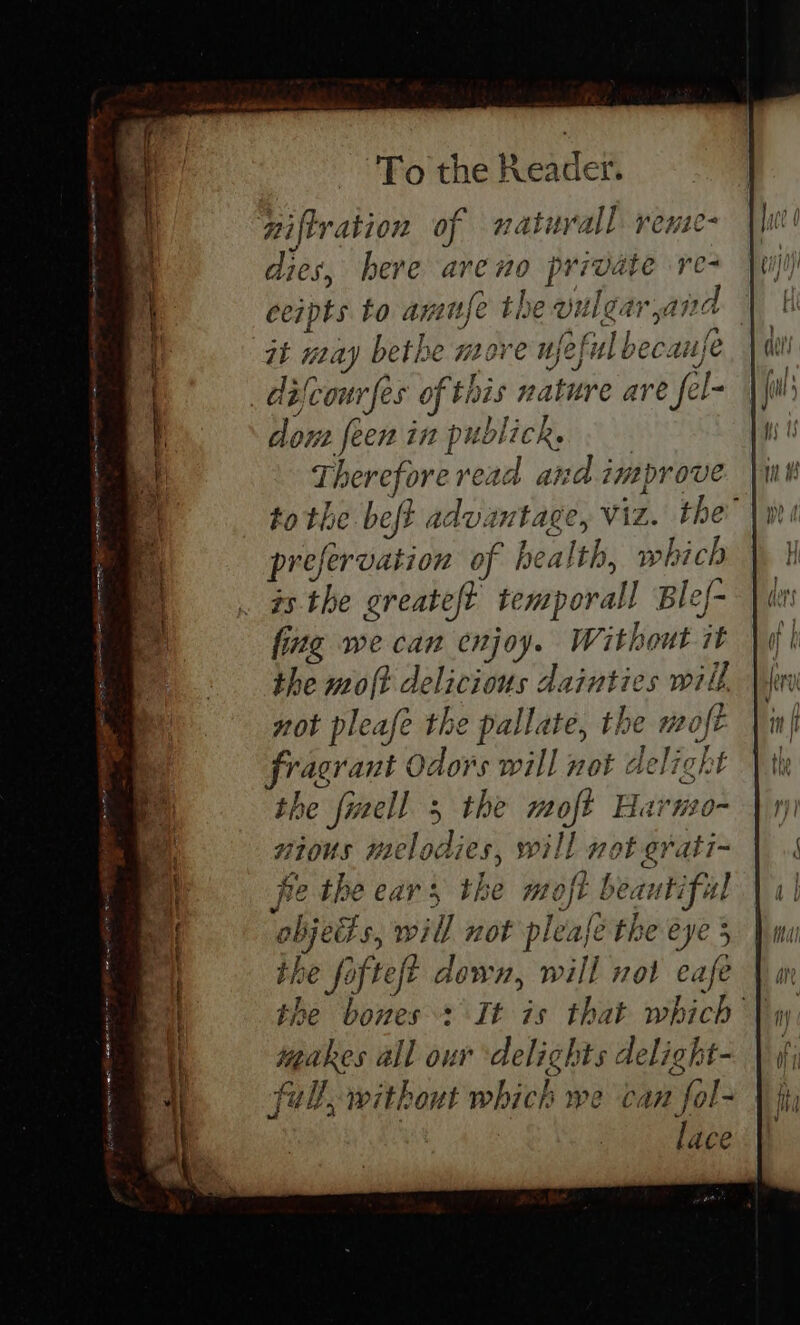 To the Reader.
niſtration of naturall reme-
dies, here are no private re-
ceipts to amuſe the vulgar, and
it may be the more uſeful becauſe
diſcourſes of this nature are ſel-
dom ſeen in publick.
Therefore read and improve
to the beſt advantage, viz. the
preſervation of health, which
is the greateſt temporall Bleſ-
ſing we can enjoy. Without it
the moſt delicious dainties will
not pleaſe the pallate, the moſt
fragrant Odors will not delight
the ſmell ; the moſt Harmo-
nious melodies, will not grati-
fie the ear ; the moſt beautiful
objects, will not pleaſe the eye ;
the ſofteſt down, will not eaſe
the bones : It is that which
makes all our delights delight-
full, without which we can ſol-
lace